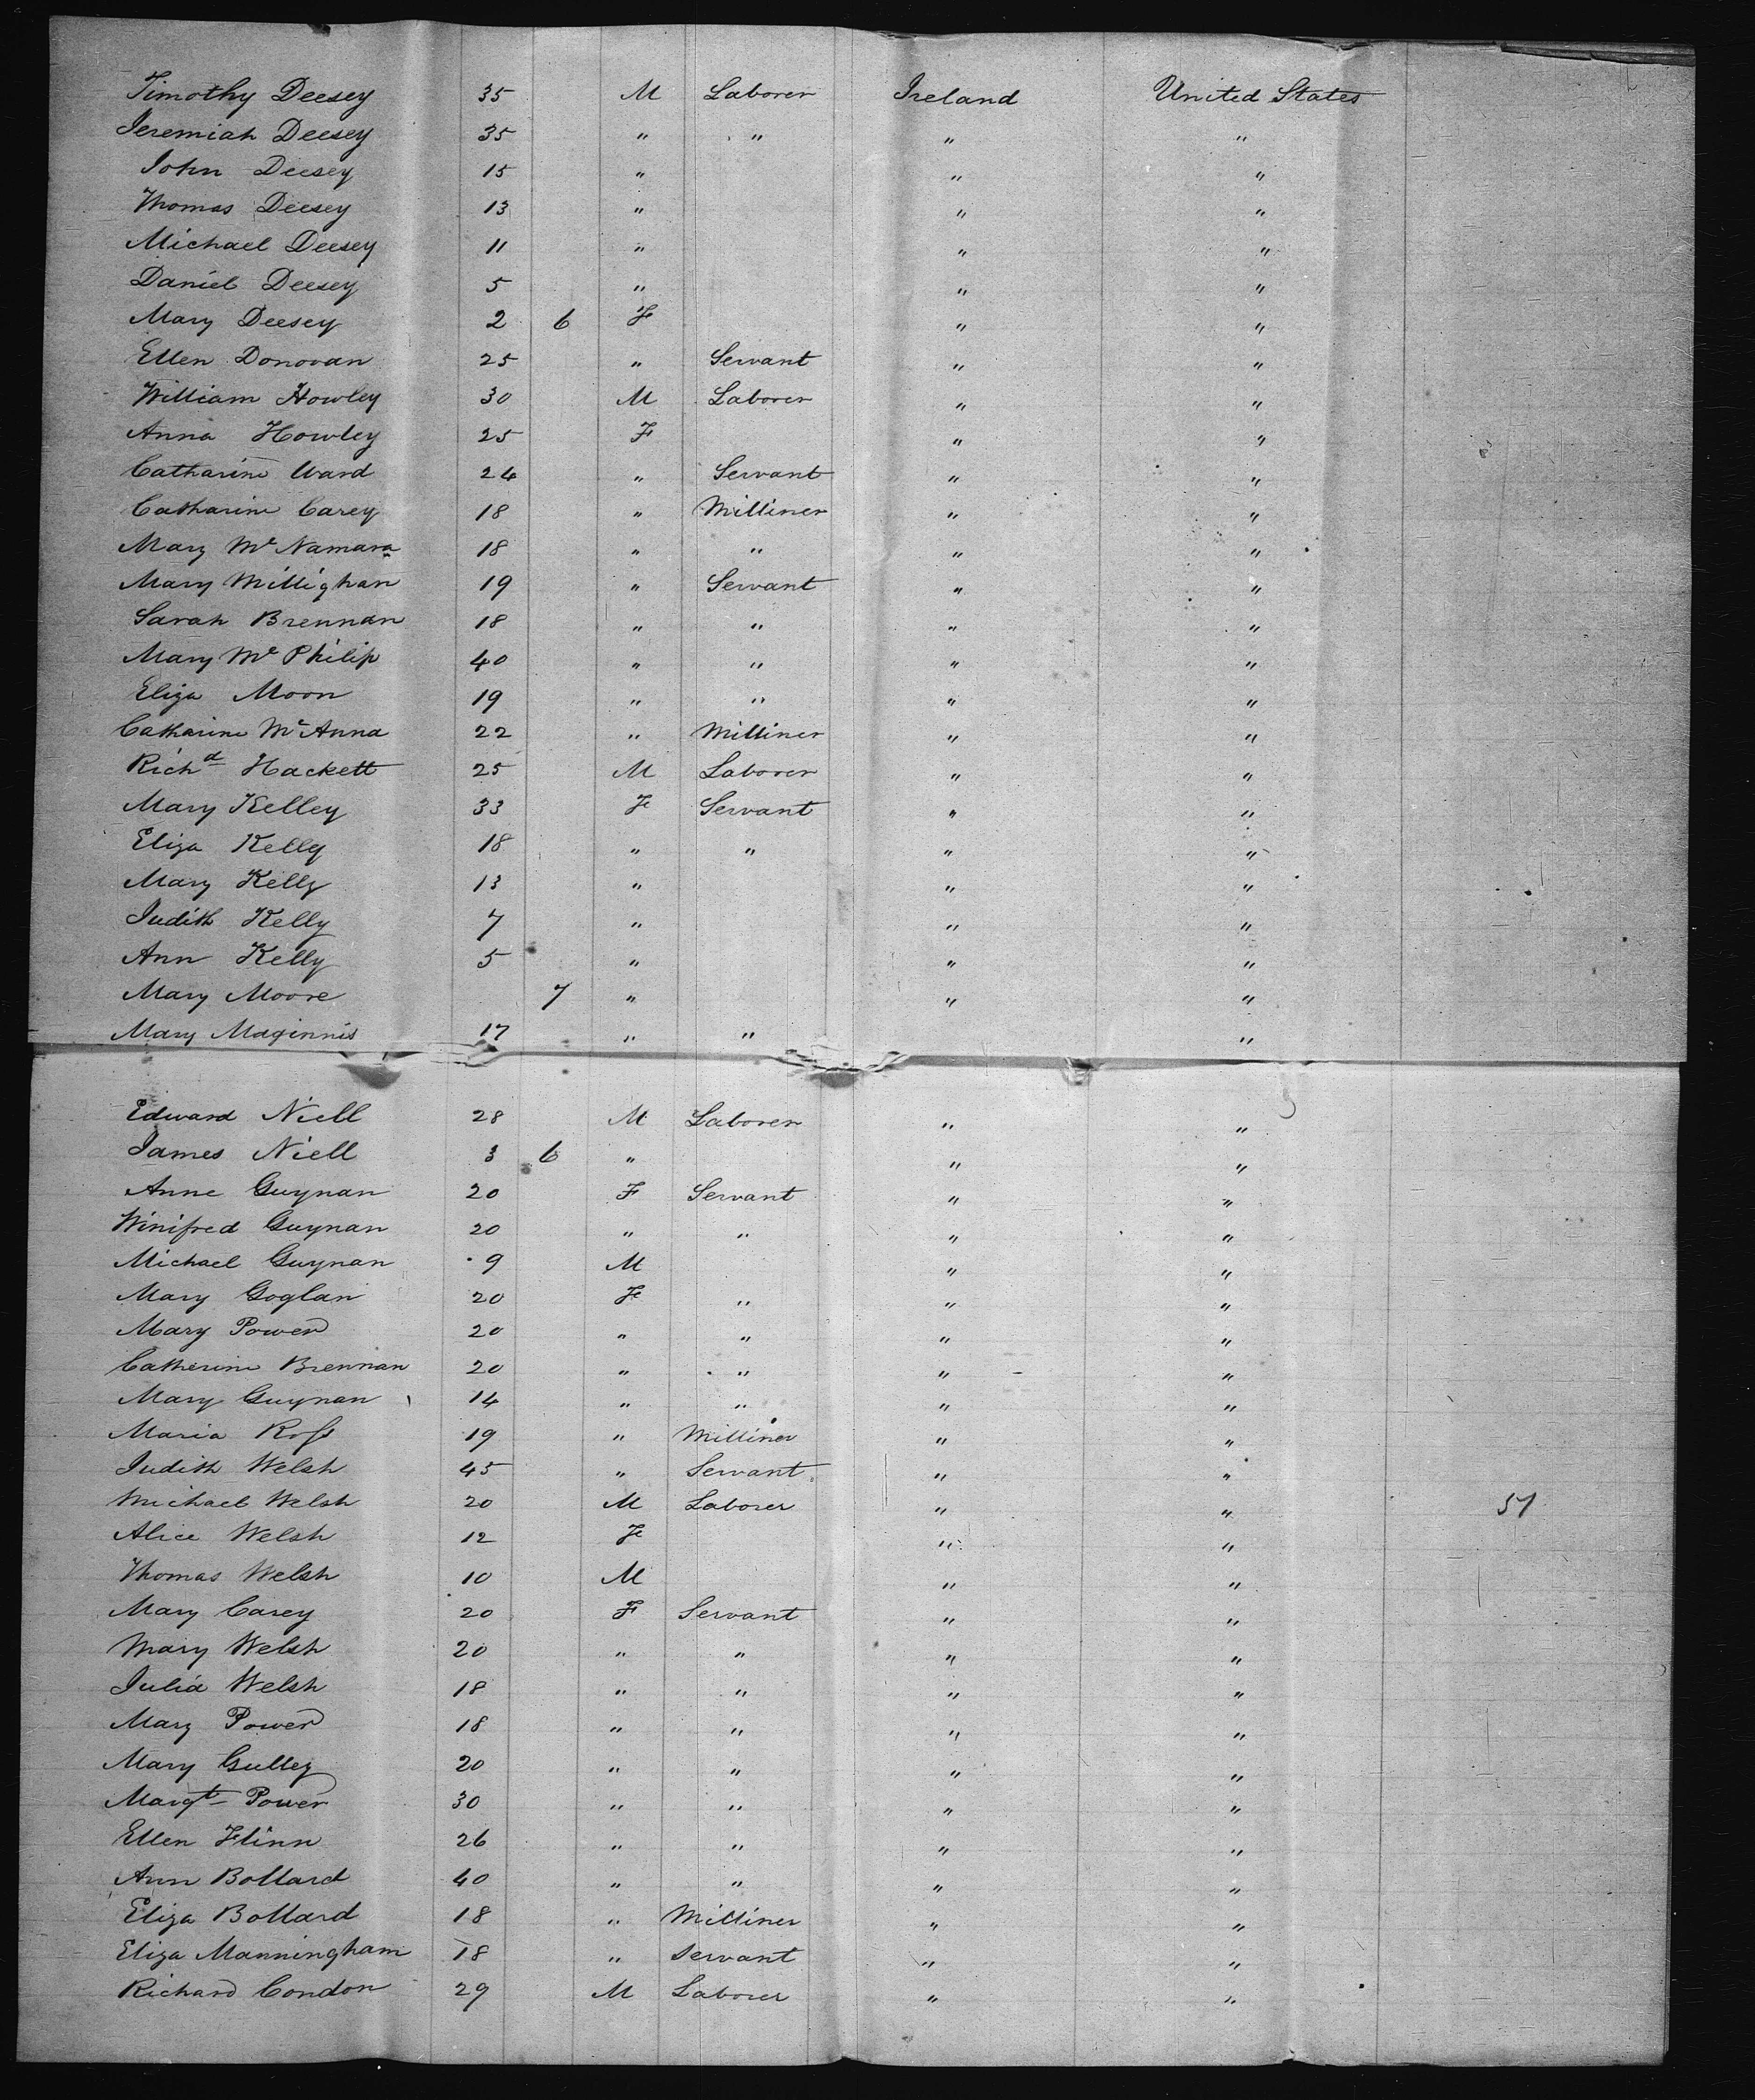 Timothy Deesey 35 M Laborer Ireland United States
Jeremiah Deesey 35 " " " "
John Deesey 15 " " "
Thomas Deesey 13 " " "
Michael Deesey 11 " " "
Daniel Deesey 5 " " "
Mary Deesey 2 6 F " "
Ellen Donovan 25 " Servant " "
William Howley 30 M Laborer " "
Anna Howley 25 F " "
Catharine Ward 24 " Servant " "
Catharine Carey 18 " Milliner " "
Mary Mc Namara 18 " " " "
Mary Millighan 19 " Servant " "
Sarah Brennan 18 " " " "
Mary Mc Philip 40 " " " "
Eliza Moon 19 " " " "
Catharine Mc Anna 22 " Milliner " "
Richd Hackett 25 M Laborer " "
Mary Kelley 33 F Servant " "
Eliza Kelly 18 " " " "
Mary Kelly 13 " " "
Judith Kelly 7 " " "
Ann Kelly 5 " " "
Mary Moore 7 " " "
Mary Maginnis 17 " " "
Edward Niell 28 M Laborer " "
James Niell 3 6 " " "
Anne Guynan 20 F Servant " "
Winifred Guynan 20 " " " "
Michael Guynan 9 M " "
Mary Goglan 20 F " " "
Mary Power 20 " " " "
Catherine Brennan 20 " " " "
Mary Guynan 14 " " " "
Maria Ross 19 " Milliner " "
Judith Welsh 45 " Servant " "
Michael Welsh 20 M Laborer " " 51
Alice Welsh 12 F " "
Thomas Welsh 10 M " "
Mary Carey 20 F Servant " "
Mary Welsh 20 " " " "
Julia Welsh 18 " " " "
Mary Power 18 " " " "
Mary Gulley 20 " " " "
Margt Power 30 " " " "
Ellen Flinn 26 " " " "
Ann Bollard 40 " " " "
Eliza Bollard 18 " Milliner " "
Eliza Manningham 18 " Servant " "
Richard Condon 29 M Laborer " "